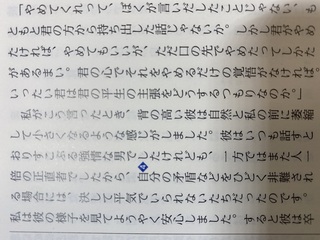 「やめてくれって、ぼくが言いだしたことじゃない、も
ともと君の方から持ち出した話じゃないか。しかし君がやめ
たければ、やめてもいいが、ただ口の先でやめたってしかた
があるまい。君の心でそれをやめるだけの覚悟がなければ。
いったい君は君の平生の主張をどうするつもりなのか。」
私がこう言ったとき、背の高い彼は自然と私の前に萎縮
して小さくなるような感じがしました。彼はいつも話すと
おりすこぶる強情な男でしたけれども、一方ではまた人一
倍の正直者でしたから、自分の矛盾などをひどく非難され
る場合には、決して平気でいられないたちだったのです。
私は彼の様子を見てようやく安心しました。すると彼は卒